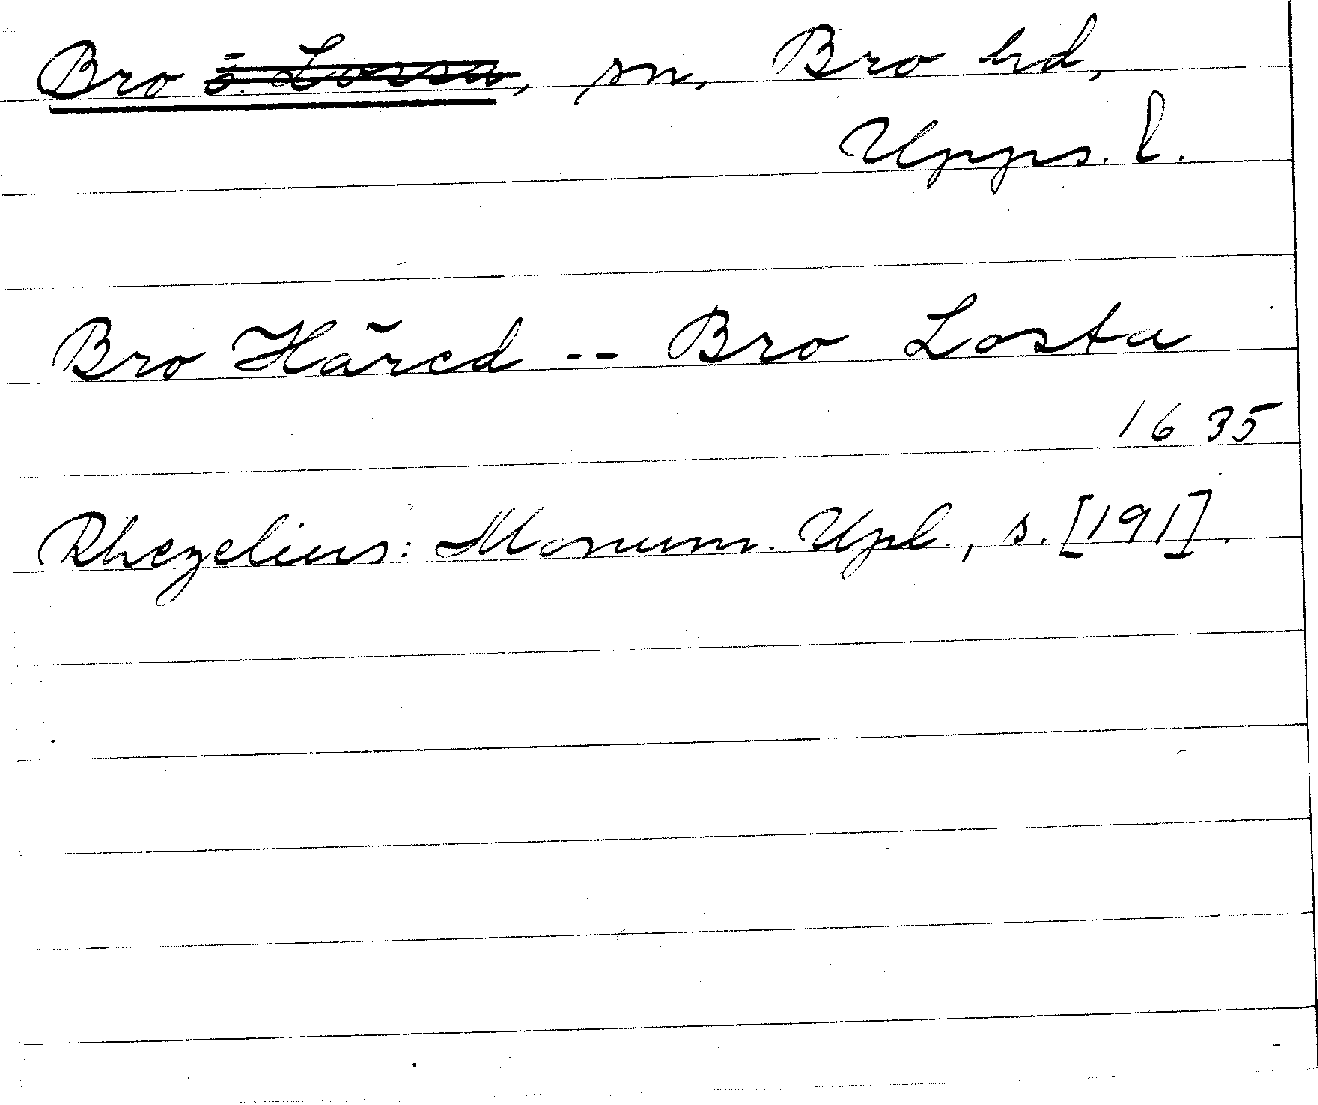 Bro ö. Lossa, sn, Bro hd,
Upps. l.
Bro Härad -- Bro Losta
1635
Rhezelius: Monum. Upl., s. [191].